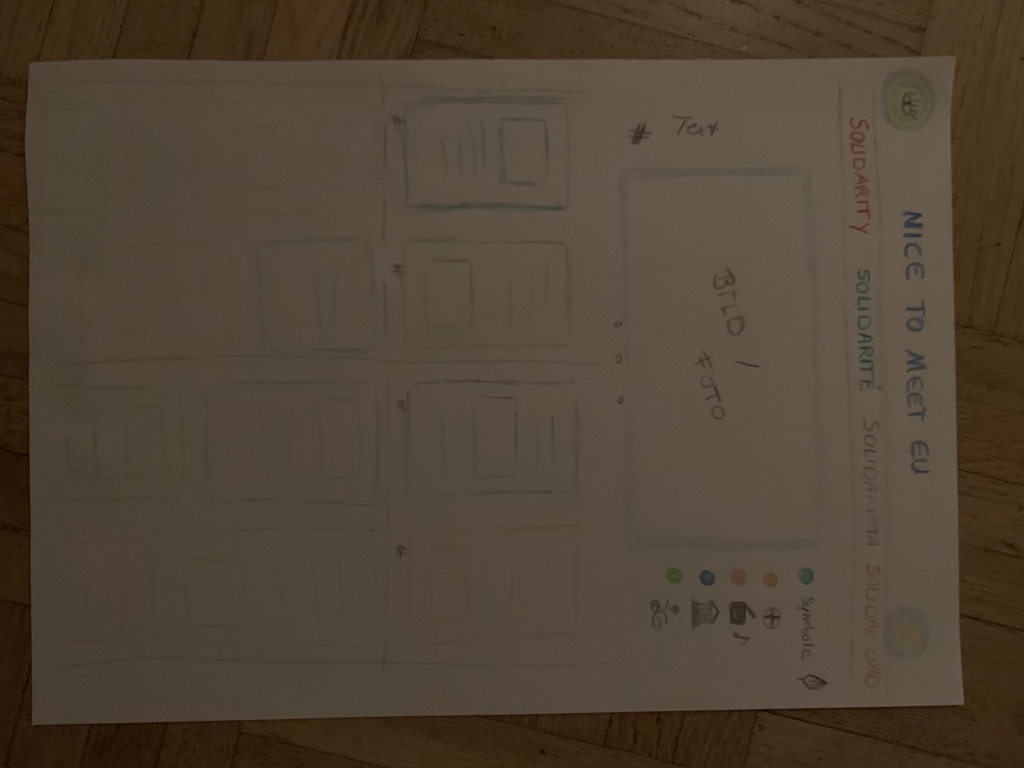 NICE TO MEET EU
SOLIDARITY SOLIDARITÉ SOLIDARITA SOLIDARIDAD
# Text
BILD /
FOTO
Symbole
#
#
#
#